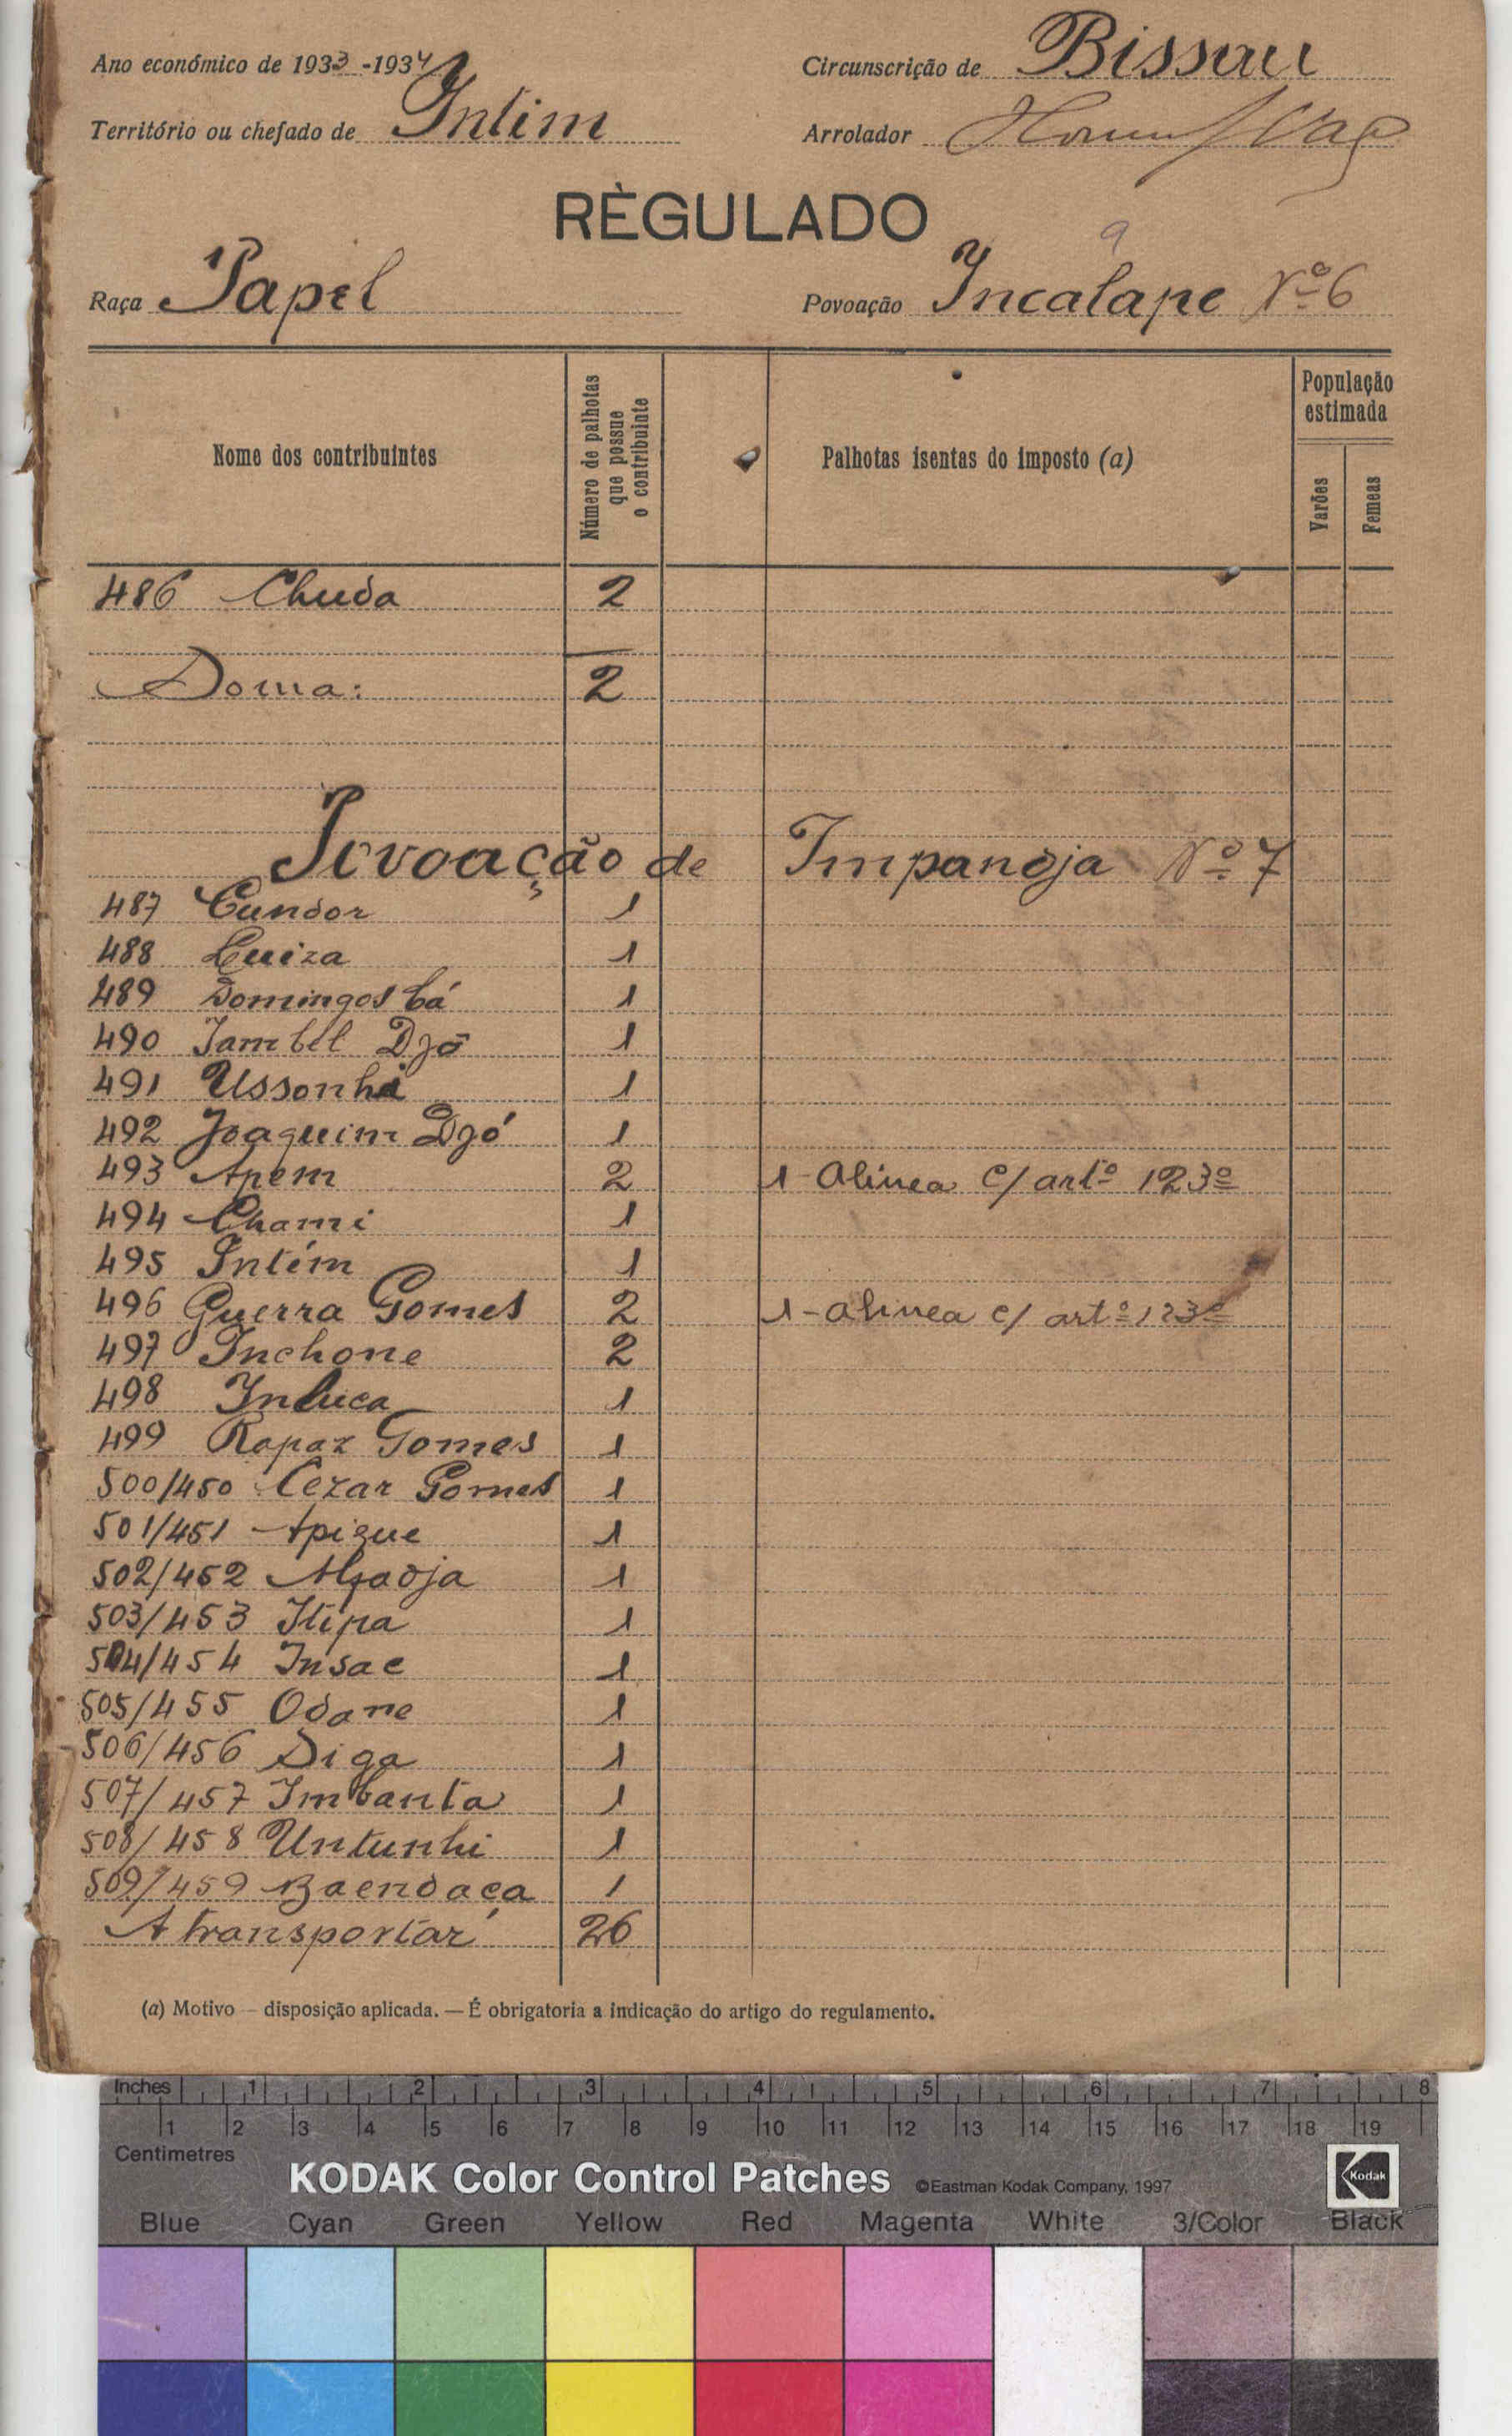 Ano económico de 1933-1934 Circunscrição de Bissau
Território ou chefado de Intim Arrolador
RÈGULADO
Raça Papel Povoação Incalape Nº 6
Nome dos contribuintes
Número de palhotas que possue o contribuinte
Palhotas isentas do imposto (a)
População estimada
Varões
Femeas
486 Chuda 2
Soma: 2
Povoação de Impandja Nº 7
487 Cundor 1
488 Luiza 1
489 Domingos Cá 1
490 Jambel Djó 1
491 Ussonhi 1
492 Joaquim Djó 1
493 Apem 2 1-Alinea c/ artº 123º
494 Chami 1
495 Intém 1
496 Guerra Gomes 2 1-alinea c/ artº 123º
497 Inchone 2
498 Induca 1
499 Rapaz Gomes 1
500/450 Cezar Gomes 1
501/451 Apigue 1
502/452 1
503/453 Itipa 1
504/454 Insae 1
505/455 Odane 1
506/456 Diga 1
507/457 Imbanta 1
508/458 Untunhi 1
509/459 Baendaca 1
A transportar 26
(a) Motivo — disposição aplicada. — É obrigatoria a indicação do artigo do regulamento.
Inches 1 2 3 4 5 6 7 8
1 2 3 4 5 6 7 8 9 10 11 12 13 14 15 16 17 18 19
Centimetres
KODAK Color Control Patches ©Eastman Kodak Company, 1997 Kodak
Blue Cyan Green Yellow Red Magenta White 3/Color Black